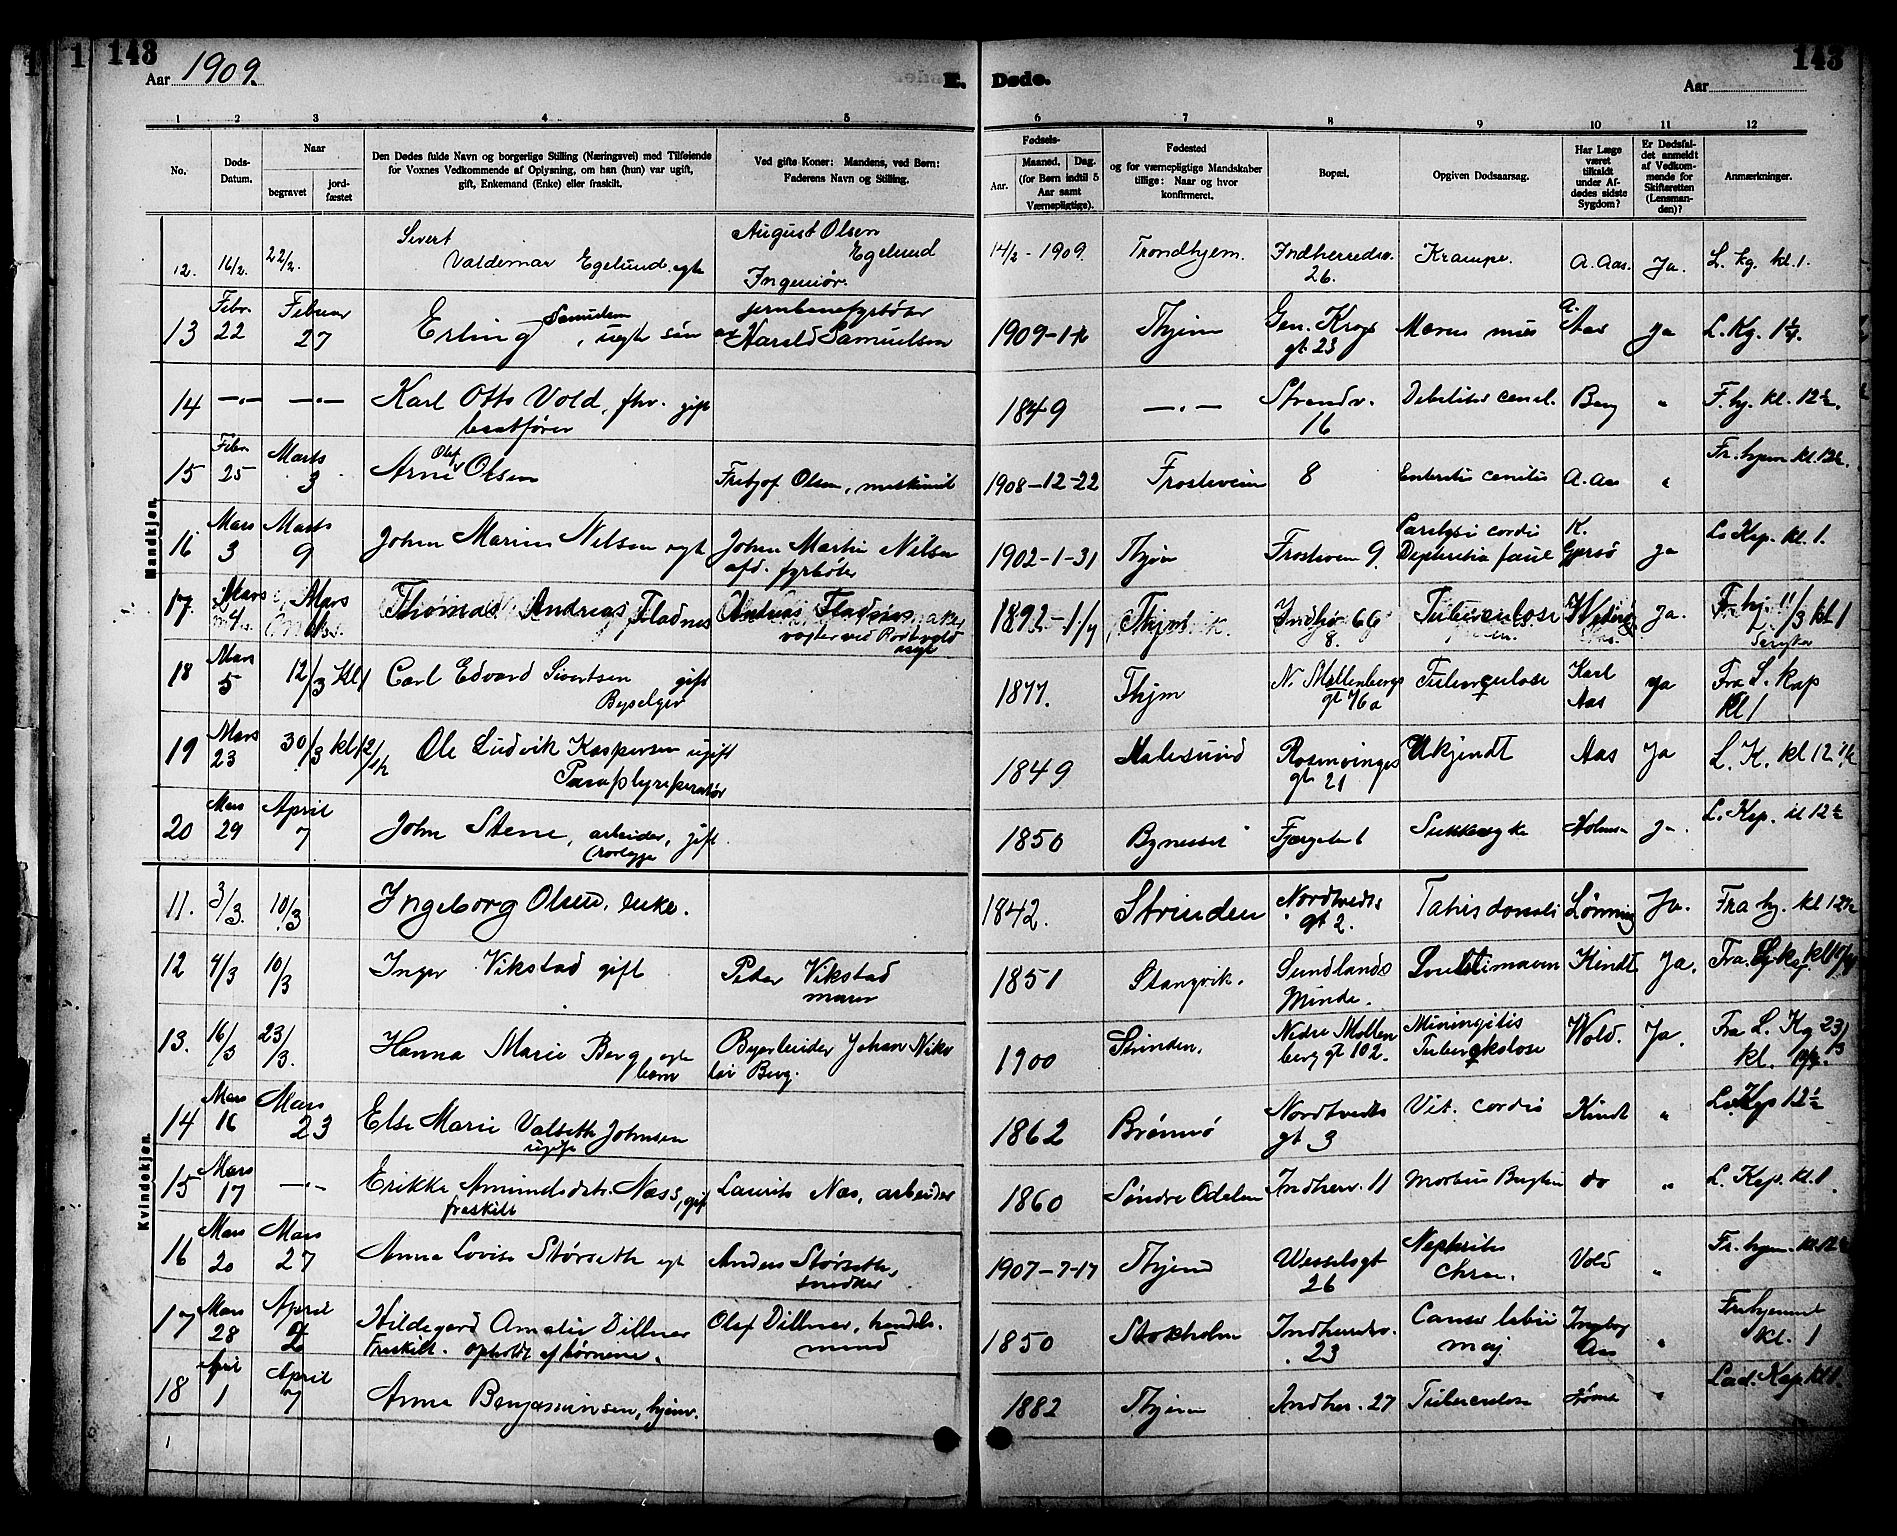 143
143
Aar 1909.
E. Døde.
Aar
1 2 3 4 5 6 7 8 9 10 11 12
No.
Døds-Datum.
Naar
begravet
jord-fæstet
Den Dødes fulde Navn og borgerlige Stilling (Næringsvei) med Tilføiende for Voxnes Vedkommende af Oplysning, om han (hun) var ugift, gift, Enkemand (Enke) eller fraskilt.
Ved gifte Koner: Mandens, ved Børn: Faderens Navn og Stilling.
Fødsels-
Aar.
Maaned. Dag.
(for Børn indtil 5 Aar samt Værnepligtige).
Fødested
og for værnepligtige Mandskaber tillige: Naar og hvor konfirmeret.
Bopæl.
Opgiven Dødsaarsag.
Har Læge været tilkaldt under Afdødes sidste Sygdom?
Er Dødsfaldet anmeldt af Vedkommende for Skifteretten (Lensmanden)?
Anmærkninger.
Mandkjøn.
12. 16/2. 22/2. Sivert Valdemar Egelund. egte August Olsen Egelund Ingeniør. 14/2 - 1909. Trondhjem. Indherredsv. 26. Krampe. A. Aas. Ja. L. kg. kl. 1.
13 Febr. 22 Februar 27 Erling Samuelsen, uegte søn av jernbanefyrbøter Harald Samuelsen 1909-1- Thjem Gen. Krogs gt. 23 A. Aas ja L. Kg.
14 —.— —.— Karl Otto Vold, fhv. gift 1849 —.— Strandv. 16 Berg " F. hj. kl. 12½.
15 Febr. 25 Marts 3 Arne Olaf Olsen Fritjof Olsen, maskinist 1908-12-22 Frostaveien 8 A. Aas " Fr. hjem kl. 12½.
16 Mars 3 Marts 9 Johan Marius Nilsen egt Johan Martin Nilsen afd. fyrbøter 1902-1-31 Thjem Frosteveien 9. Paralysi cordis K. Gjersø ja La Kap. kl. 1.
17. Mars 4 Mars Thomas Andreas Fladnes vogter ved Rotvold asyl 1892 - Thjem 8. Tuberculose Ja. Fr. hj. 11/3 kl 1
18 Mars 5 12/3 kl 1 Carl Edvard Sivertsen gift Byselger 1877. Thjm N. Møllenbergs gt 76a Tuberculose Karl Aas ja Fra L. Kap kl 1
19 Mars 23 30/3 kl 12 1/2 Ole Ludvik Kaspersen ugift Paraplyreperatør 1849 Aalesund Rosenvinges gt 21 Ukjendt Aas Ja L. K. kl 12 1/2
20 Mars 29 April 7 John Stene, arbeider, gift. 1850 Bynesset Fjærgata 6 Sukkersyke Holmen Ja. L. Kap. kl 12½
Kvindekjøn.
11. 3/3. 10/3 Ingeborg Olsen, enke. 1842. Strinden Nordtvedts gt 2. Tabes dorsalis Lønning Ja. Fra hj. kl 12½
12 4/3 10/3 Inger Vikstad gift Peder Vikstad murer 1851 Stangvik. Sundlands Minde. Kindt Ja.
13. 16/3 23/3. Hanna Marie Berg, egte barn Byarbeider Johan Nikolai Berg. 1900 Strinden. Nedre Møllenberg gt 102. Miningitis Tuberkulose Wold. Ja. Fra L. Kg 23/3 kl.
14 Mars 16 Mars 23 Else Marie Valseth Johnsen ugift 1862 Brønnø Nordtvedts gt 3 Vit. cordis Kindt " L. Kap 12½
15 Mars 17 —.— Erikke Amundsdtr. Næss, gift fraskilt Laurits Næs, arbeider 1860 Søndre Odalen Indherr. 11 Morbus Brightii do " L. Kap. kl. 1
16 Mars 20 Mars 27 Anna Lovise Størseth egt Anders Størseth, snedker 1907-7-17 Thjem Wesselsgt 26 Nephritis chron. Vold " Fr. hjem. kl. 12½
17 Mars 28 April 2 Hildegard Amalie Dillner Fraskilt. opholdt af børnene. Olaf Dillner, handelsmand 1850 Stokholm Indherredsv. 23 Cancer labii maj. Ingeborg Aas " Fra hjemmet kl. 1
18 April 1 April 7 Anna Benjaminsen, hjemv. 1882 Thjem Indher. 27 Tuberculose " Lad. Kap kl 1.